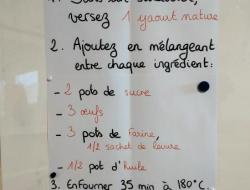 1. Dans un saladier,
versez 1 yaourt nature
2. Ajoutez en mélangeant
entre chaque ingrédient:
- 2 pots de sucre
- 3 œufs
- 3 pots de farine,
1/2 sachet de levure
- 1/2 pot d'huile
3. Enfourner 35 min à 180°C.